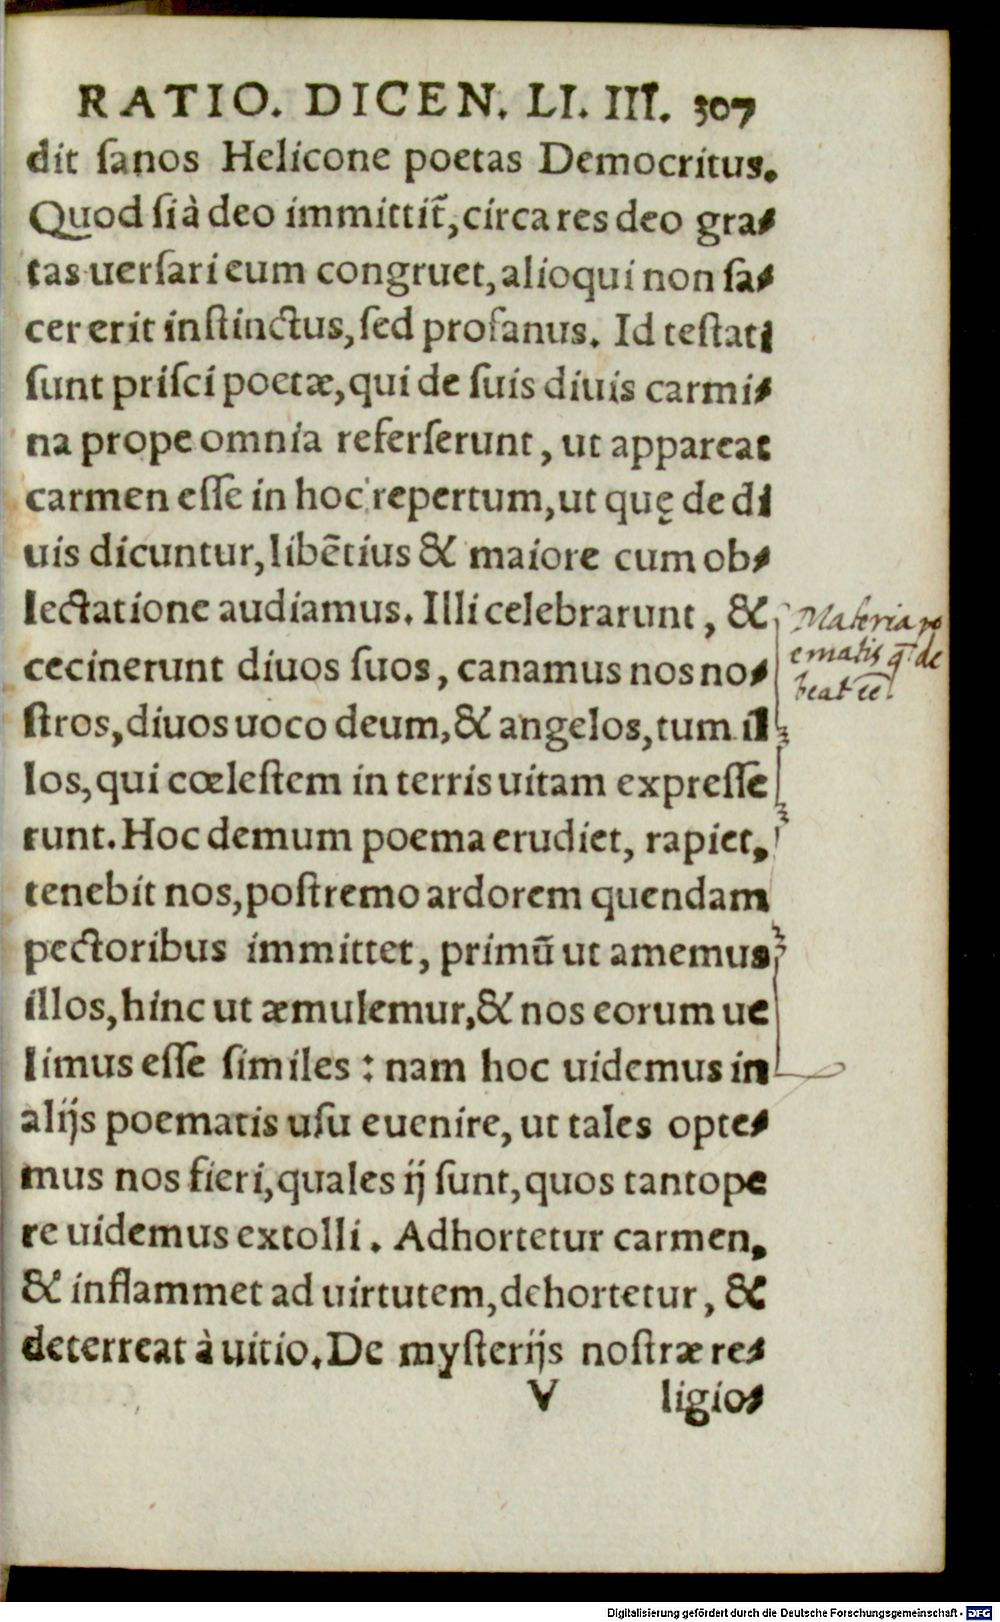 RATIO. DICEN. LI. III. 307
dit ſanos Helicone poetas Democritus.
Quod ſi à deo immittit̃, circa res deo gra⸗
tas uerſari eum congruet, alioqui non ſa⸗
cer erit inſtinctus, ſed profanus. Id teſtati
ſunt priſci poetæ, qui de ſuis diuis carmi⸗
na prope omnia referſerunt, ut appareat
carmen eſſe in hoc repertum, ut quę de di
uis dicuntur, libẽtius & maiore cum ob⸗
lectatione audiamus. Illi celebrarunt, &
cecinerunt diuos ſuos, canamus nos no⸗
ſtros, diuos uoco deum, & angelos, tum il
los, qui cœleſtem in terris uitam expreſſe
runt. Hoc demum poema erudiet, rapiet,
tenebit nos, poſtremo ardorem quendam
pectoribus immittet, primũ ut amemus
illos, hinc ut æmulemur, & nos eorum ue
limus eſſe ſimiles : nam hoc uidemus in
alijs poematis uſu euenire, ut tales opte⸗
mus nos fieri, quales ij ſunt, quos tantope
re uidemus extolli. Adhortetur carmen,
& inflammet ad uirtutem, dehortetur, &
deterreat à uitio. De myſterijs noſtræ re⸗
V ligio⸗
Materia po
ematis q̄ de
beat eē.
Digitalisierung gefördert durch die Deutsche Forschungsgemeinschaft - DFG